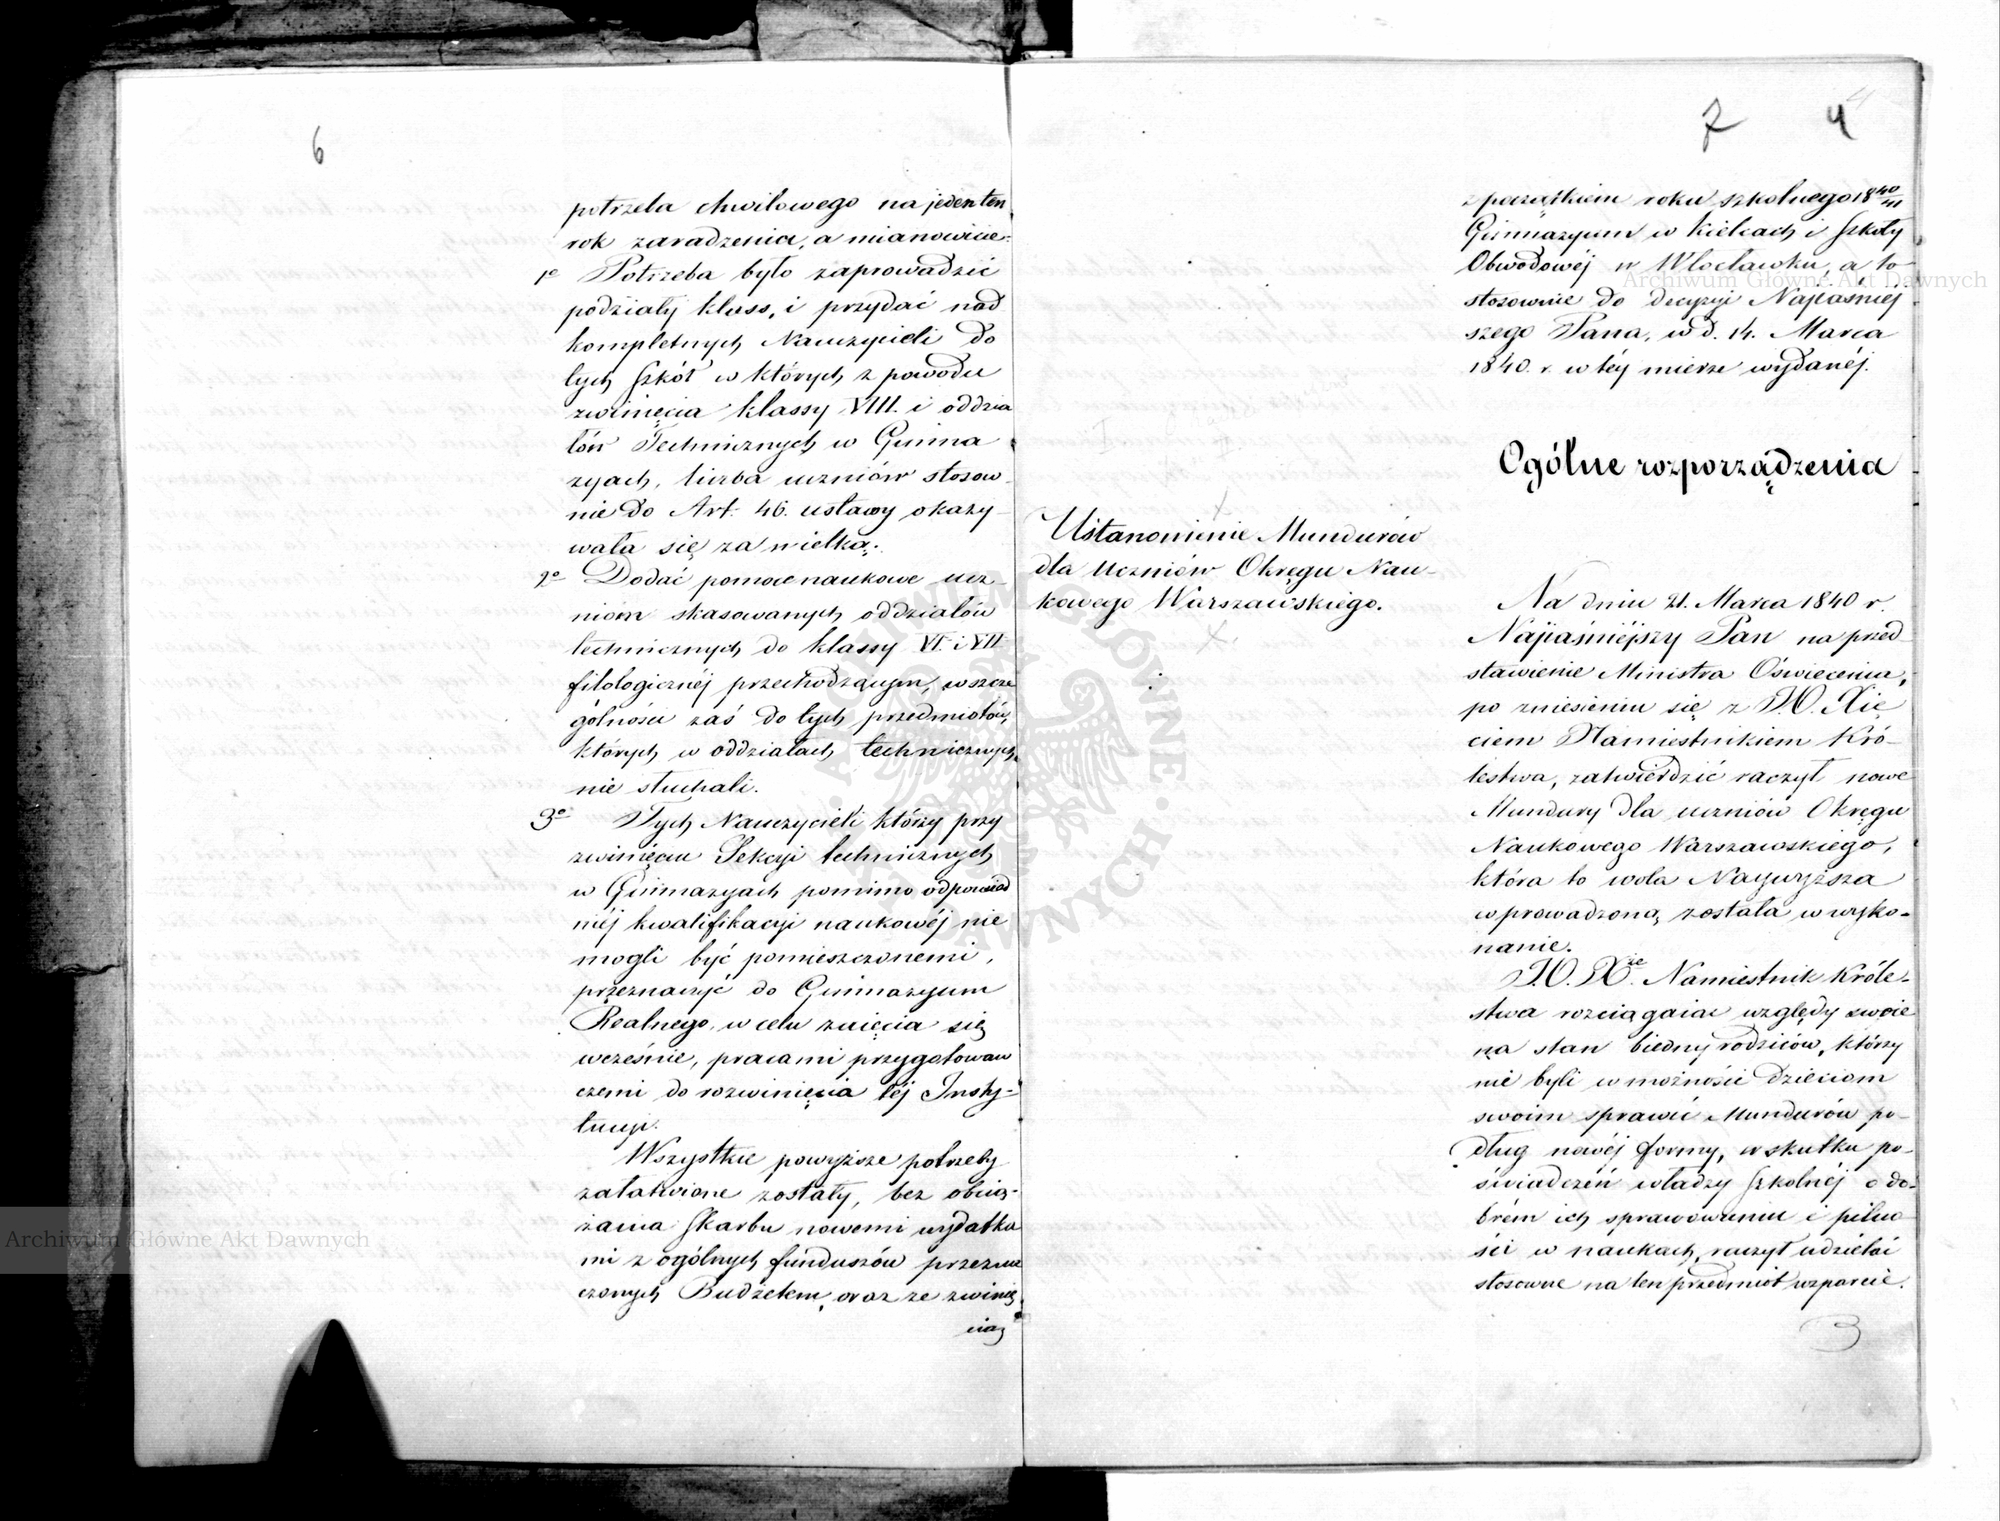 6
potrzeba chwilowego na jeden ten
rok zaradzenia, a mianowicie:
1o Potrzeba było zaprowadzić
podziały klass, i przydać nad
kompletnych Nauczycieli do
tych Szkół w których z powodu
zwinięcia klassy VIII. i oddzia
łów Technicznych w Gimna
zyach, liczba uczniów stosow-
nie do Art. 46. ustawy okazy-
wała się za wielką.
2o Dodać pomoce naukowe ucz-
niom skasowanych oddziałów
technicznych do klassy VI. i VII
filologicznéj przechodzącym, w szcze
gólności zaś do tych przedmiotów,
których w oddziałach technicznych
nie słuchali.
3o Tych Nauczycieli którzy przy
zwinięciu Sekcyi technicznych
w Gimnazyach pomimo odpowied
niéj kwalifikacyi naukowéj nie
mogli być pomieszczonemi,
przeznaczyć do Gimnazyum
Realnego, w celu zajęcia się
wcześnie, pracami przygotowaw
czemi do rozwinięcia téj Insty-
tucyi.
Wszystkie powyższe potrzeby
załatwione zostały, bez obcią-
żania Skarbu nowemi wydatka
mi z ogólnych funduszów przezna
czonych Budżetem, oraz ze zwinię
cia
7 4
z początkiem roku szkolnego 1840/41
Gimnazyum w Kielcach i Szkoły
Obwodowéj w Włocławku, a to
stosownie do decyzyi Najjaśniej
szego Pana, w d. 14. Marca
1840. r. w téj mierze wydanéj.
Ogólne rozporządzenia
Ustanowienie Mundurów
dla Uczniów Okręgu Nau-
kowego Warszawskiego.
Na dniu 21. Marca 1840 r.
Najjaśniejszy Pan na przed
stawienie Ministra Oświecenia,
po zniesieniu się z J. O. Xię
ciem Namiestnikiem Kró-
lestwa, zatwierdzić raczył nowe
Mundury dla uczniów Okręgu
Naukowego Warszawskiego,
która to wola Najwyższa
wprowadzoną została w wyko-
nanie.
J. O. Xże. Namiestnik Króle-
stwa rozciągaiąc względy swoie
na stan biedny rodziców, którzy
nie byli w możności dzieciom
swoim sprawić Mundurów po-
dług nowéj formy, w skutku po-
świadczeń władzy Szkolnéj o do-
brém ich sprawowaniu i pilno
ści w naukach, raczył udzielać
stosowne na ten przedmiot wsparcie.
3
Archiwum Główne Akt Dawnych
Archiwum Główne Akt Dawnych